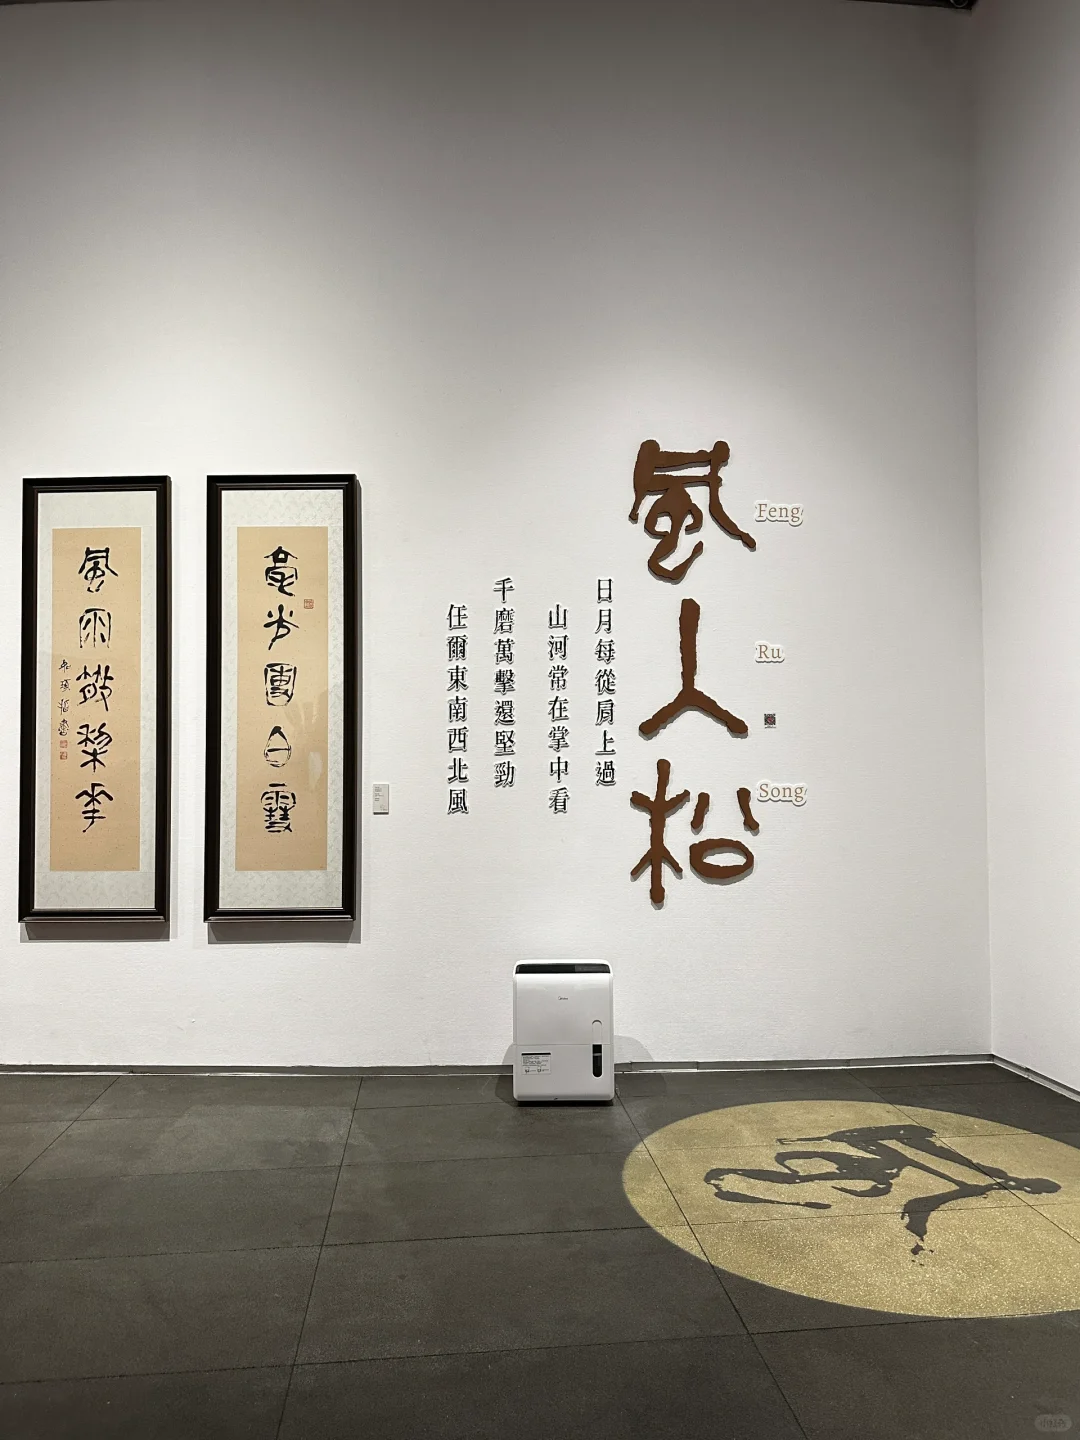 風入松
Feng
Ru
Song
日月每從肩上過
山河常在掌中看
千磨萬擊還堅勁
任爾東南西北風
團白雪
風雨散梨花
Midea
小红书